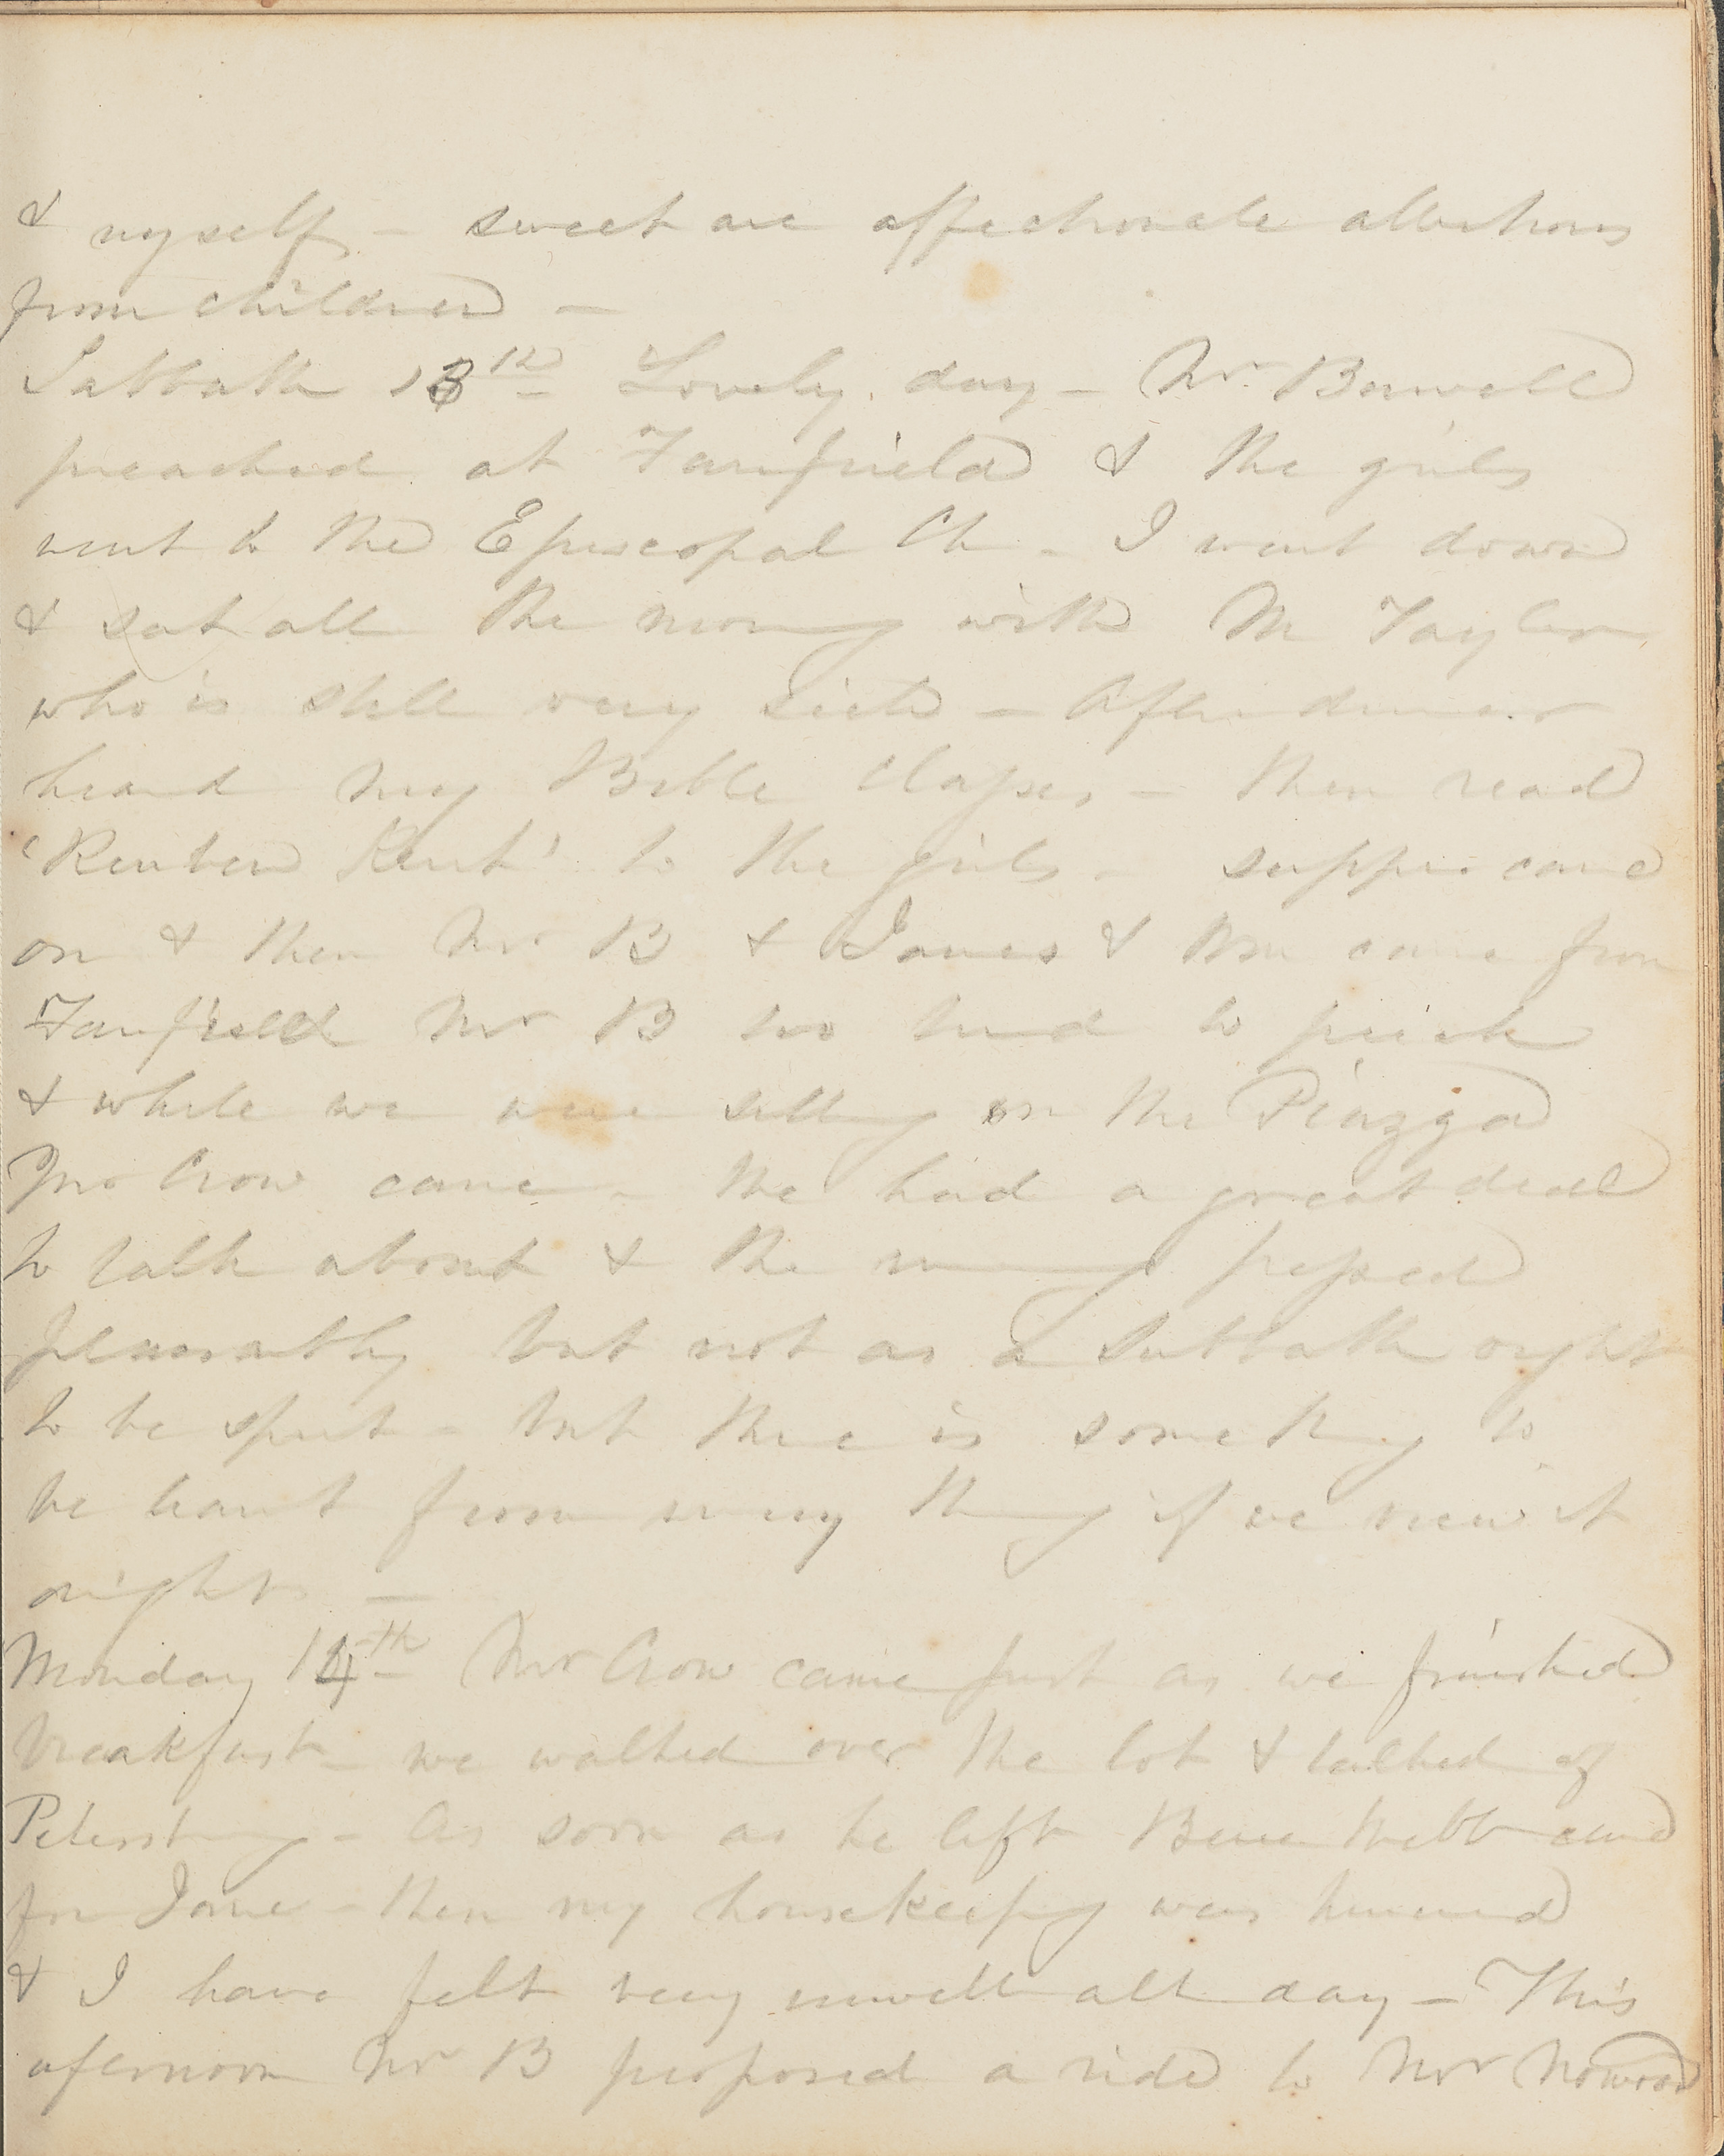 & myself - sweet are affectionate attentions
from children -
Sabbath 13th Lovely day - Mr Burwell
preached at Fairfield & the girls
went to the Episcopal Ch - I went down
& sat all the morng with M Taylor
who is still very sick - After dinner
heard my Bible Class, - then read
'Reuben Kent' to the girls - supper came
on & then Mr B & James & came from
Fairfield Mr B too tired to preach
& while we were sitting on the Piazza
Mr Crow came - We had a great deal
to talk about & the evening passed
pleasantly but not as a Sabbath ought
to be spent - but there is somethg to
be learnt from every thing if we view it
aright -
Monday 14th Mr Crow came just as we finished
breakfast - we walked over the lot & talked of
Petersburg - As soon as he left Webb came
for Jane - then my housekeepg was hurried
& I have felt very unwell all day - This
afternoon Mr B proposed a ride to Mr Norwood